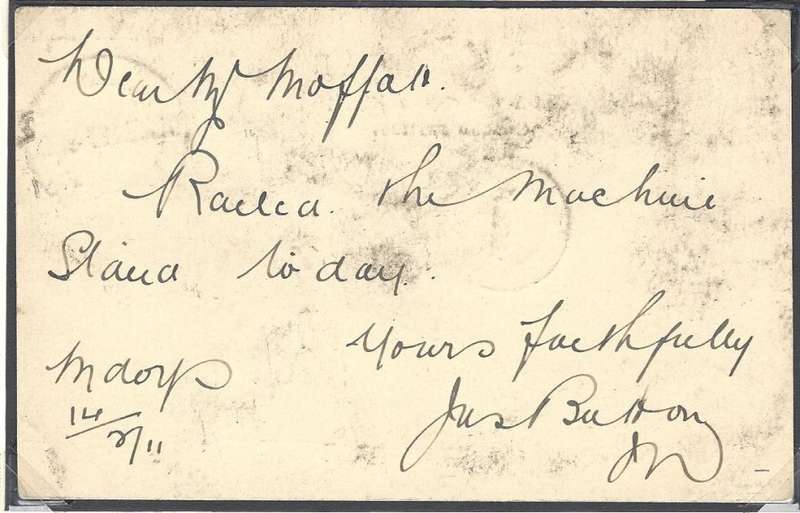 Dear Mr Moffatt.
Railed. the Machine
Stand to day.
Yours faithfully
Mdorp
Jas Button
14/2/11
Jr